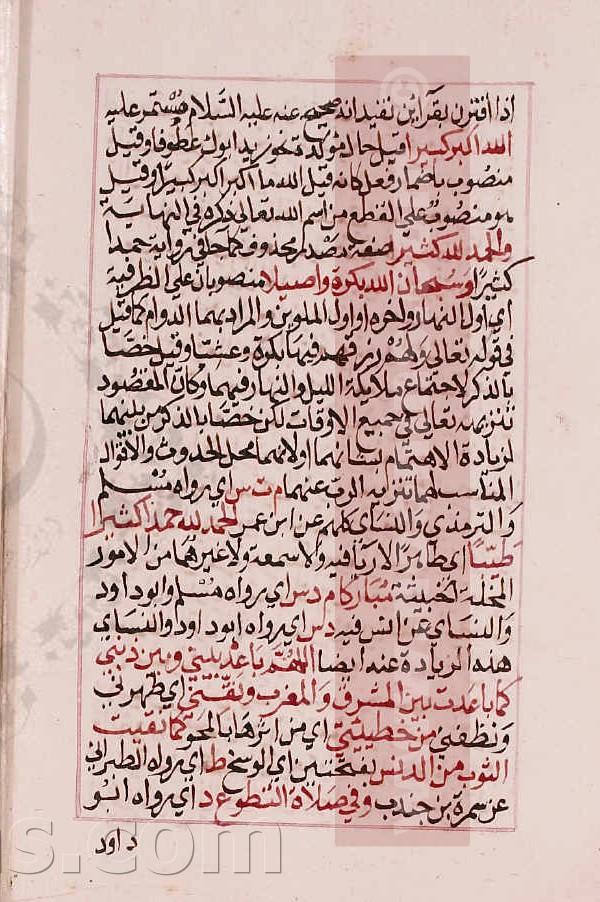 اذا اقترن بقرائن تفيد انه صح عنه عليه السلام مستمر عليه
الله اكبر كبيرا قيل حال مؤكدة نحو زيد ابوك عطوفا وقيل
منصوب باضمار فعل كانه قيل الله ما اكبر اكبر كبيرا وقيل
هو منصوب على القطع من اسم الله تعالى ذكره في النهاية
والحمد لله كثيرا صفة مصدر محذوف كما جا في رواية حمدا
كثيرا وسبحان الله بكرة واصيلا منصوبان على الظرفية
اي اول النهار واخره او اول الملوين والمراد بهما الدوام كما قيل
في قوله تعالى ولهم رزقهم فيها بكرة وعشيا وقيل خصا
بالذكر لاجتماع ملايكة الليل والنهار فيهما وكان المقصود
تنزيهه تعالى في جميع الاوقات لكن خصا بالذكر من بينهما
لزيادة الاهتمام بشانهما او لانهما محل الحدوث والافول
المناسب لهما تنزيه الرب عنهما م ت س اي رواه مسلم
والترمذي والنساي كلهم عن ابن عمر الحمد لله حمدا كثيرا
طيبا اي طاهرا لا رياء فيه ولا سمعة ولا غيرهما من الامور
المخلة الخبيثة مباركا م د س اي رواه مسلم وابو داود
والنساي عن انس فيه د س اي رواه ابو داود والنساي
هذه الزيادة عنه ايضا اللهم باعد بيني وبين ذنبي
كما باعدت بين المشرق والمغرب ونقني اي طهرني
ونظفني من خطيئتي اي من اثرها بالمحو كما نقيت
الثوب من الدنس بفتحتين اي الوسخ ط اي رواه الطبراني
عن سمرة بن جندب وفي صلاة التطوع د اي رواه ابو
داود
s.com